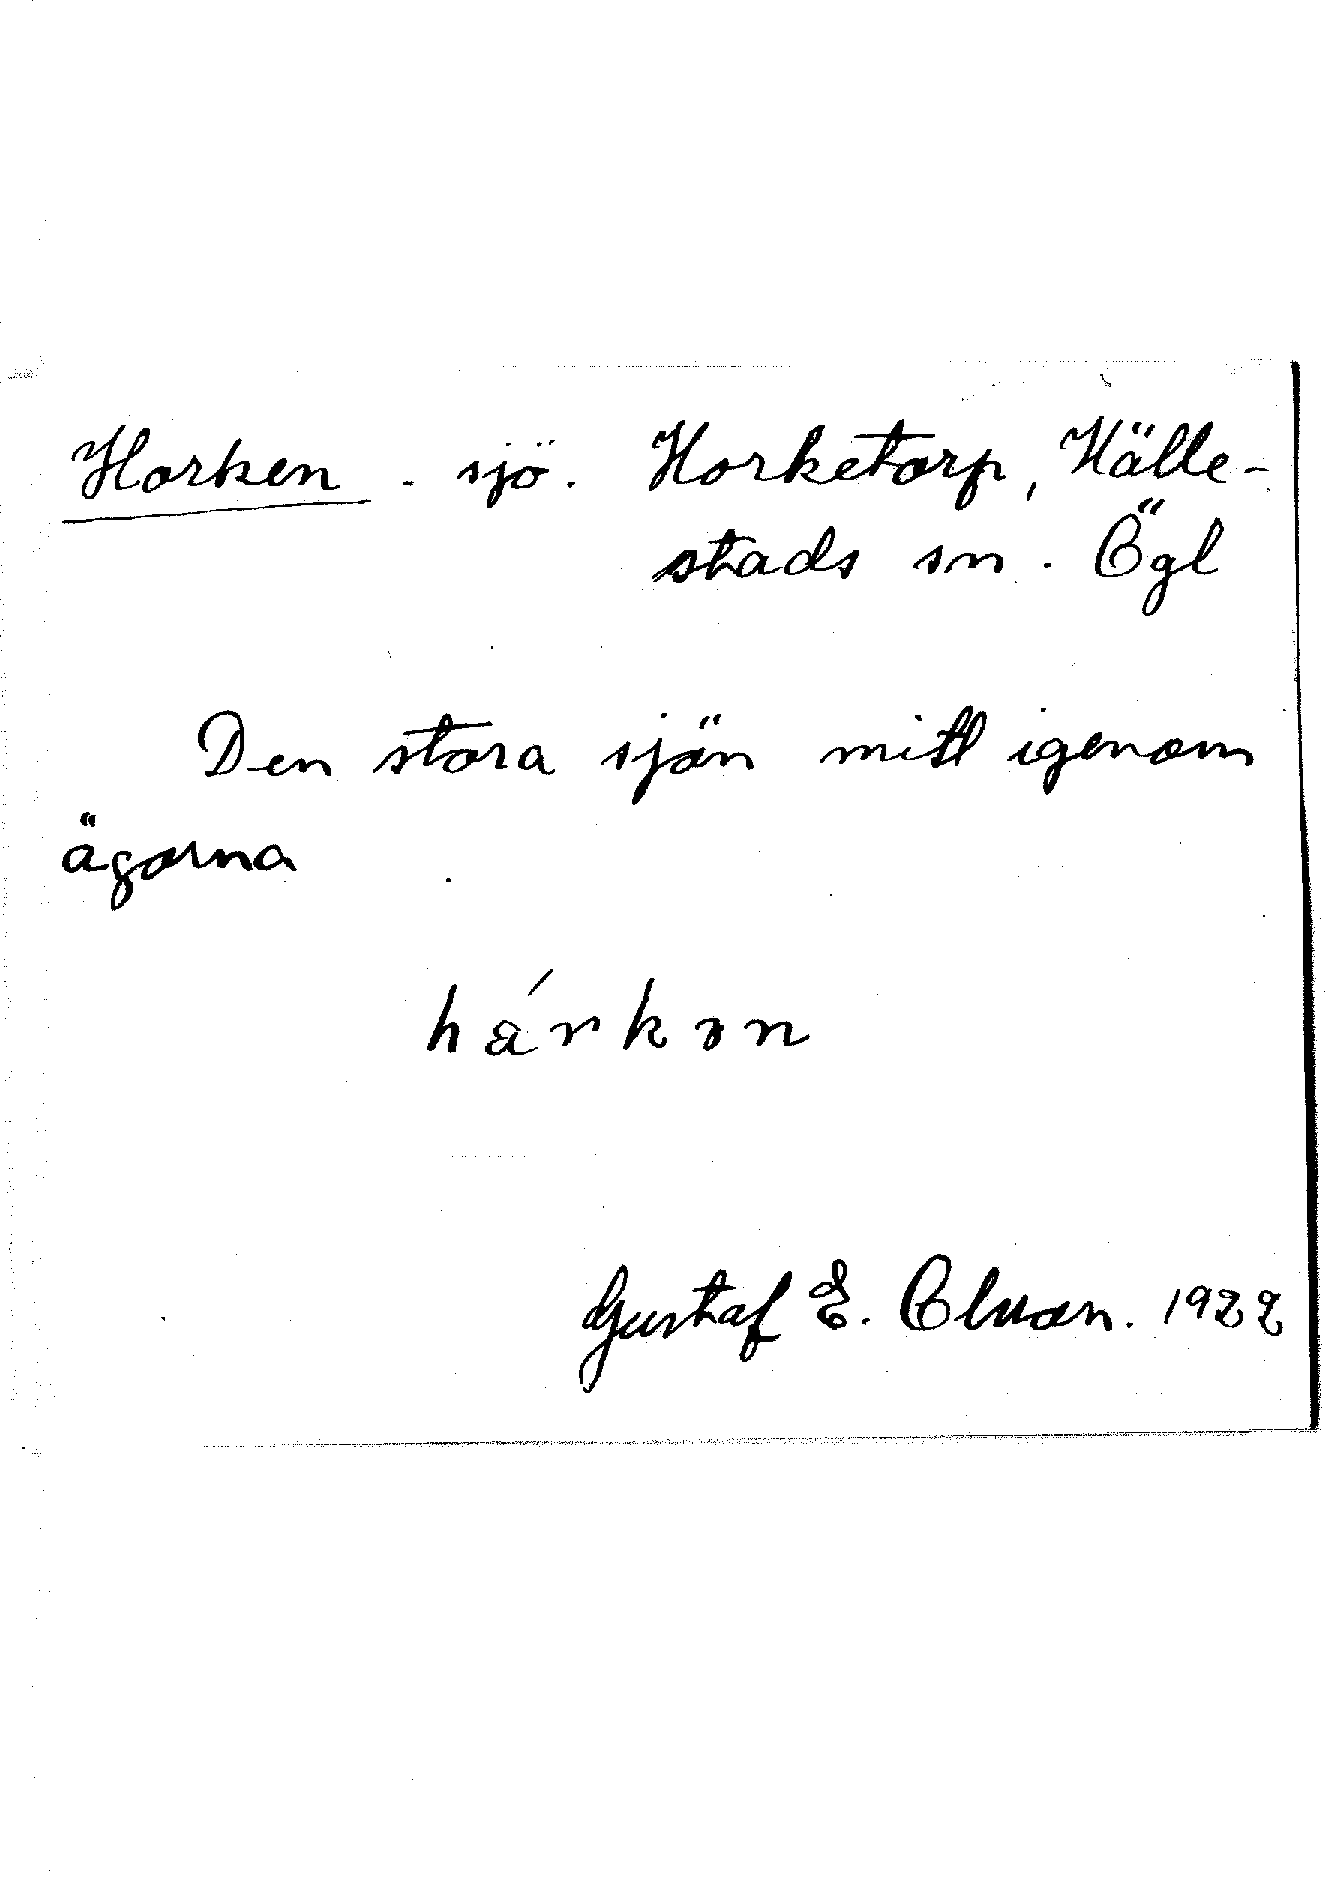 Horken - sjö. Horketorp, Hälle-
stads sn. Ögl
Den stora sjön mitt igenom
ägorna
hárkən
Gustaf E. Olson. 1922